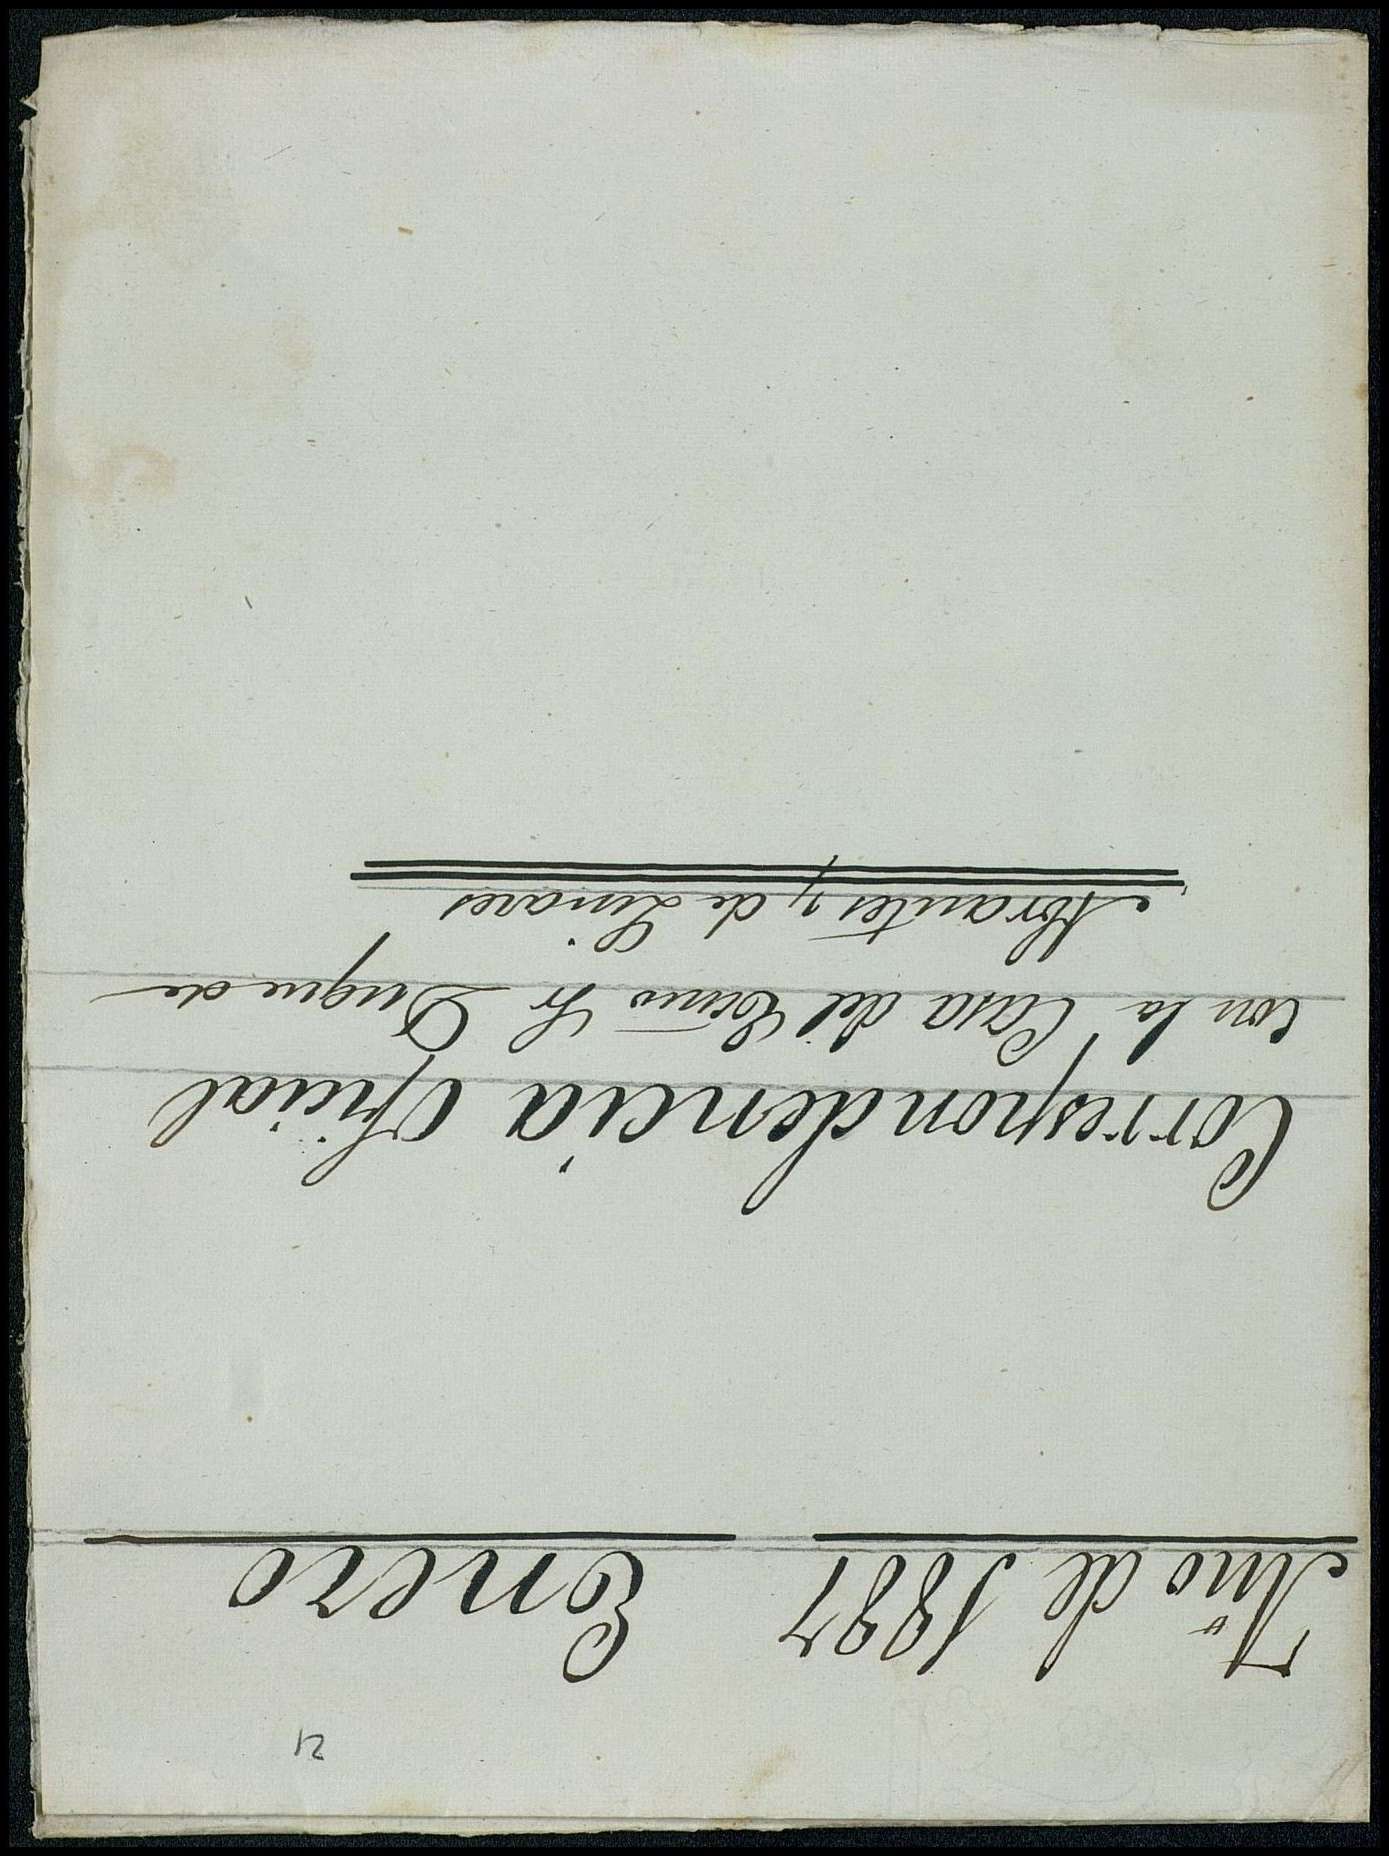 Año de 1887 Enero
Correspondencia Oficial
con la Casa del Excmo Sr Duque de
Abrantes y de Linares